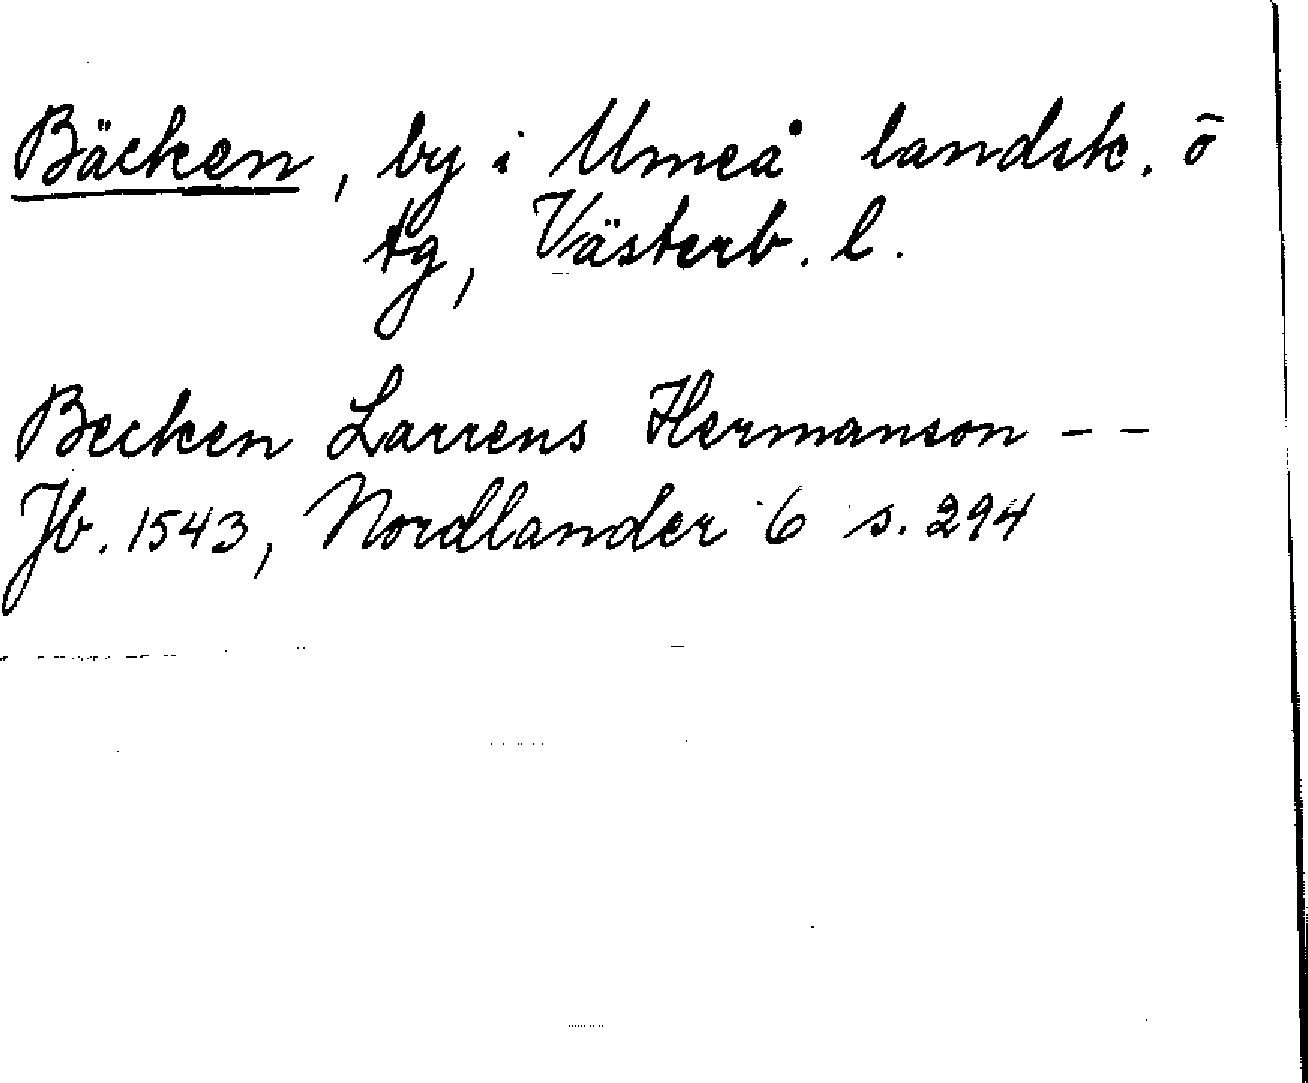 Bäcken, by i Umeå landsk. ö
tg, Västerb. l.
Becken Larrens Hermanson - -
Jb. 1543, Nordlander 6 s. 294